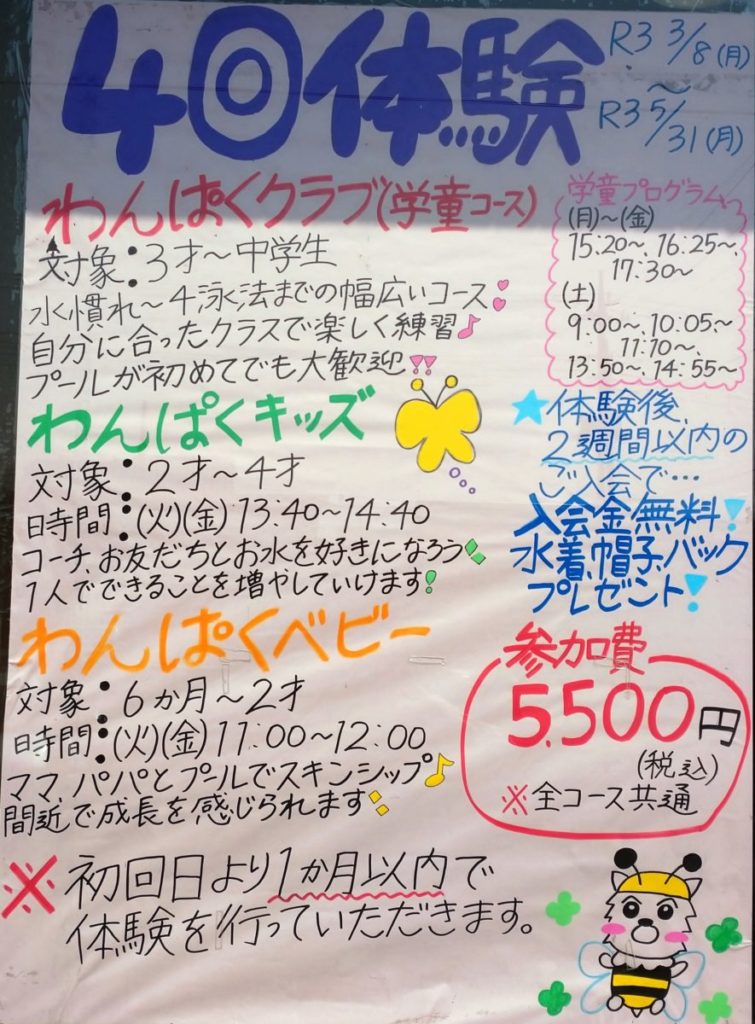 4回体験
R3 3/8(月)
～
R3 5/31(月)
わんぱくクラブ(学童コース)
対象：3才～中学生
水慣れ～4泳法までの幅広いコース
自分に合ったクラスで楽しく練習♪
プールが初めてでも大歓迎!!
学童プログラム
(月)～(金)
15:20～、16:25～、
17:30～
(土)
9:00～、10:05～
11:10～、
13:50～、14:55～
わんぱくキッズ
対象：2才～4才
時間：(火)(金)13:40～14:40
コーチ、お友だちとお水を好きになろう
1人でできることを増やしていけます!
★体験後、
2週間以内の
ご入会で…
入会金無料!
水着、帽子、バック
プレゼント!
わんぱくベビー
対象：6か月～2才
時間：(火)(金)11:00～12:00
ママ、パパとプールでスキンシップ♪
間近で成長を感じられます
参加費
5,500円
(税込)
※全コース共通
※初回日より1か月以内で
体験を行っていただきます。